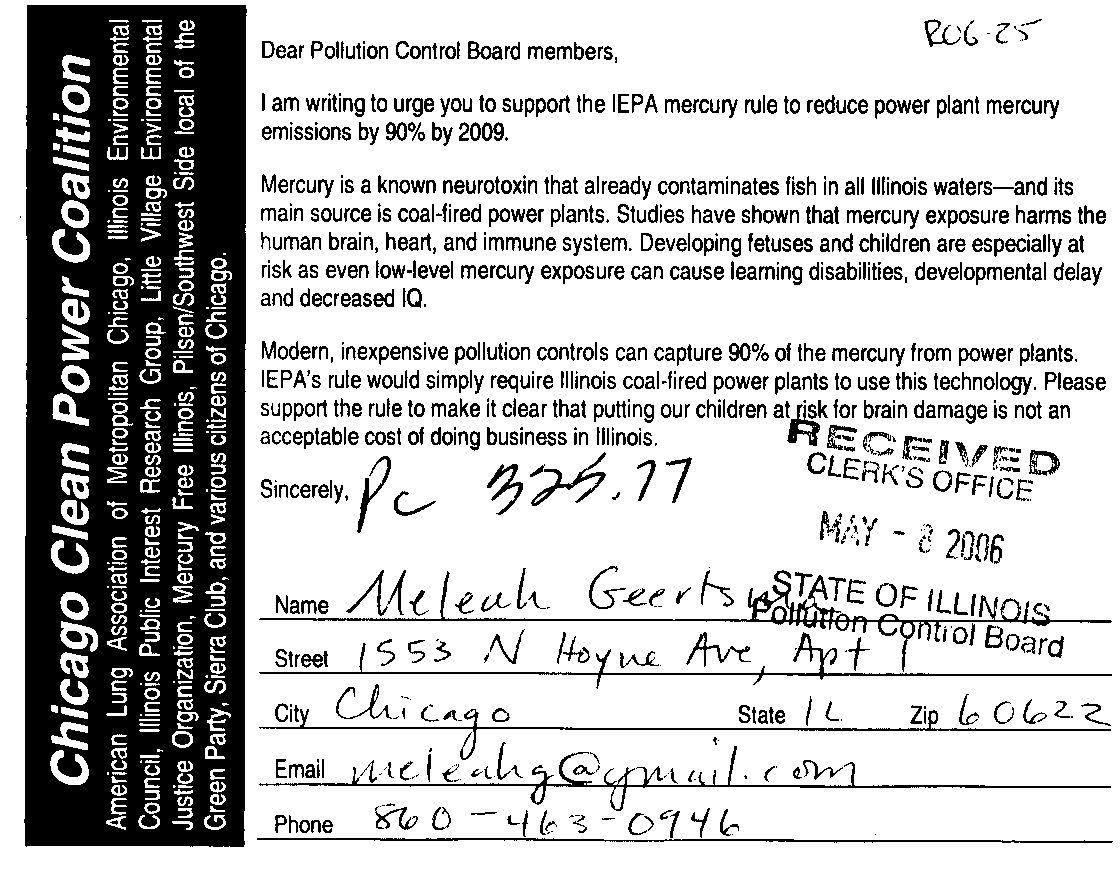 Chicago Clean Power Coalition
American Lung Association of Metropolitan Chicago, Illinois Environmental
Council, Illinois Public Interest Research Group, Little Village Environmental
Justice Organization, Mercury Free Illinois, Pilsen/Southwest Side local of the
Green Party, Sierra Club, and various citizens of Chicago.
R06-25
Dear Pollution Control Board members,
I am writing to urge you to support the IEPA mercury rule to reduce power plant mercury
emissions by 90% by 2009.
Mercury is a known neurotoxin that already contaminates fish in all Illinois waters—and its
main source is coal-fired power plants. Studies have shown that mercury exposure harms the
human brain, heart, and immune system. Developing fetuses and children are especially at
risk as even low-level mercury exposure can cause learning disabilities, developmental delay
and decreased IQ.
Modern, inexpensive pollution controls can capture 90% of the mercury from power plants.
IEPA's rule would simply require Illinois coal-fired power plants to use this technology. Please
support the rule to make it clear that putting our children at risk for brain damage is not an
acceptable cost of doing business in Illinois.
RECEIVED
CLERK'S OFFICE
MAY - 8 2006
STATE OF ILLINOIS
Pollution Control Board
Sincerely, PC 325.77
Name Meleah Geertsma
Street 1553 N Hoyne Ave, Apt 1
City Chicago State IL Zip 60622
Email meleahg@gmail.com
Phone 860-463-0946